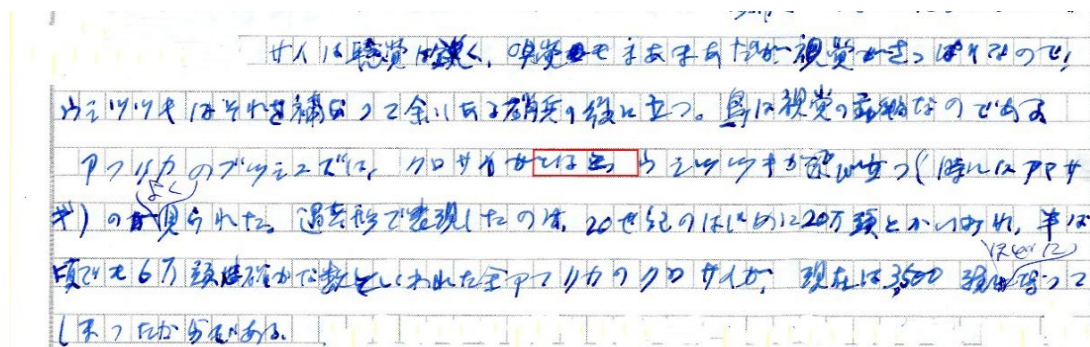 サイは聴覚は鋭く、嗅覚もまあまあだが視覚がさっぱりなので、
ウシツツキはそれを補なって余りある哨兵の役に立つ。鳥は視覚の動物なのである
アフリカのブッシュでは、クロサイ ウシツツキが (時にはアマサ
ギ)のがよく見られた。過去形で表現したのは、20世紀のはじめに20万頭とかいわれ、半ば
頃でも6万頭は確かな数といわれた全アフリカのクロサイが、現在は3,500頭ほどに減って
しまったからである。